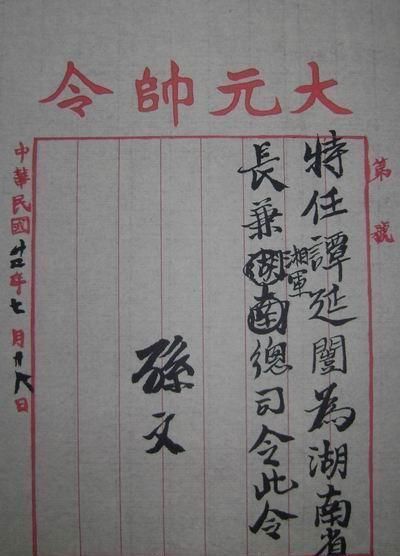 大元帥令
第 號
特任譚延闓為湖南省
長兼湖南湘軍總司令此令
孫文
中華民國十二年七月十六日